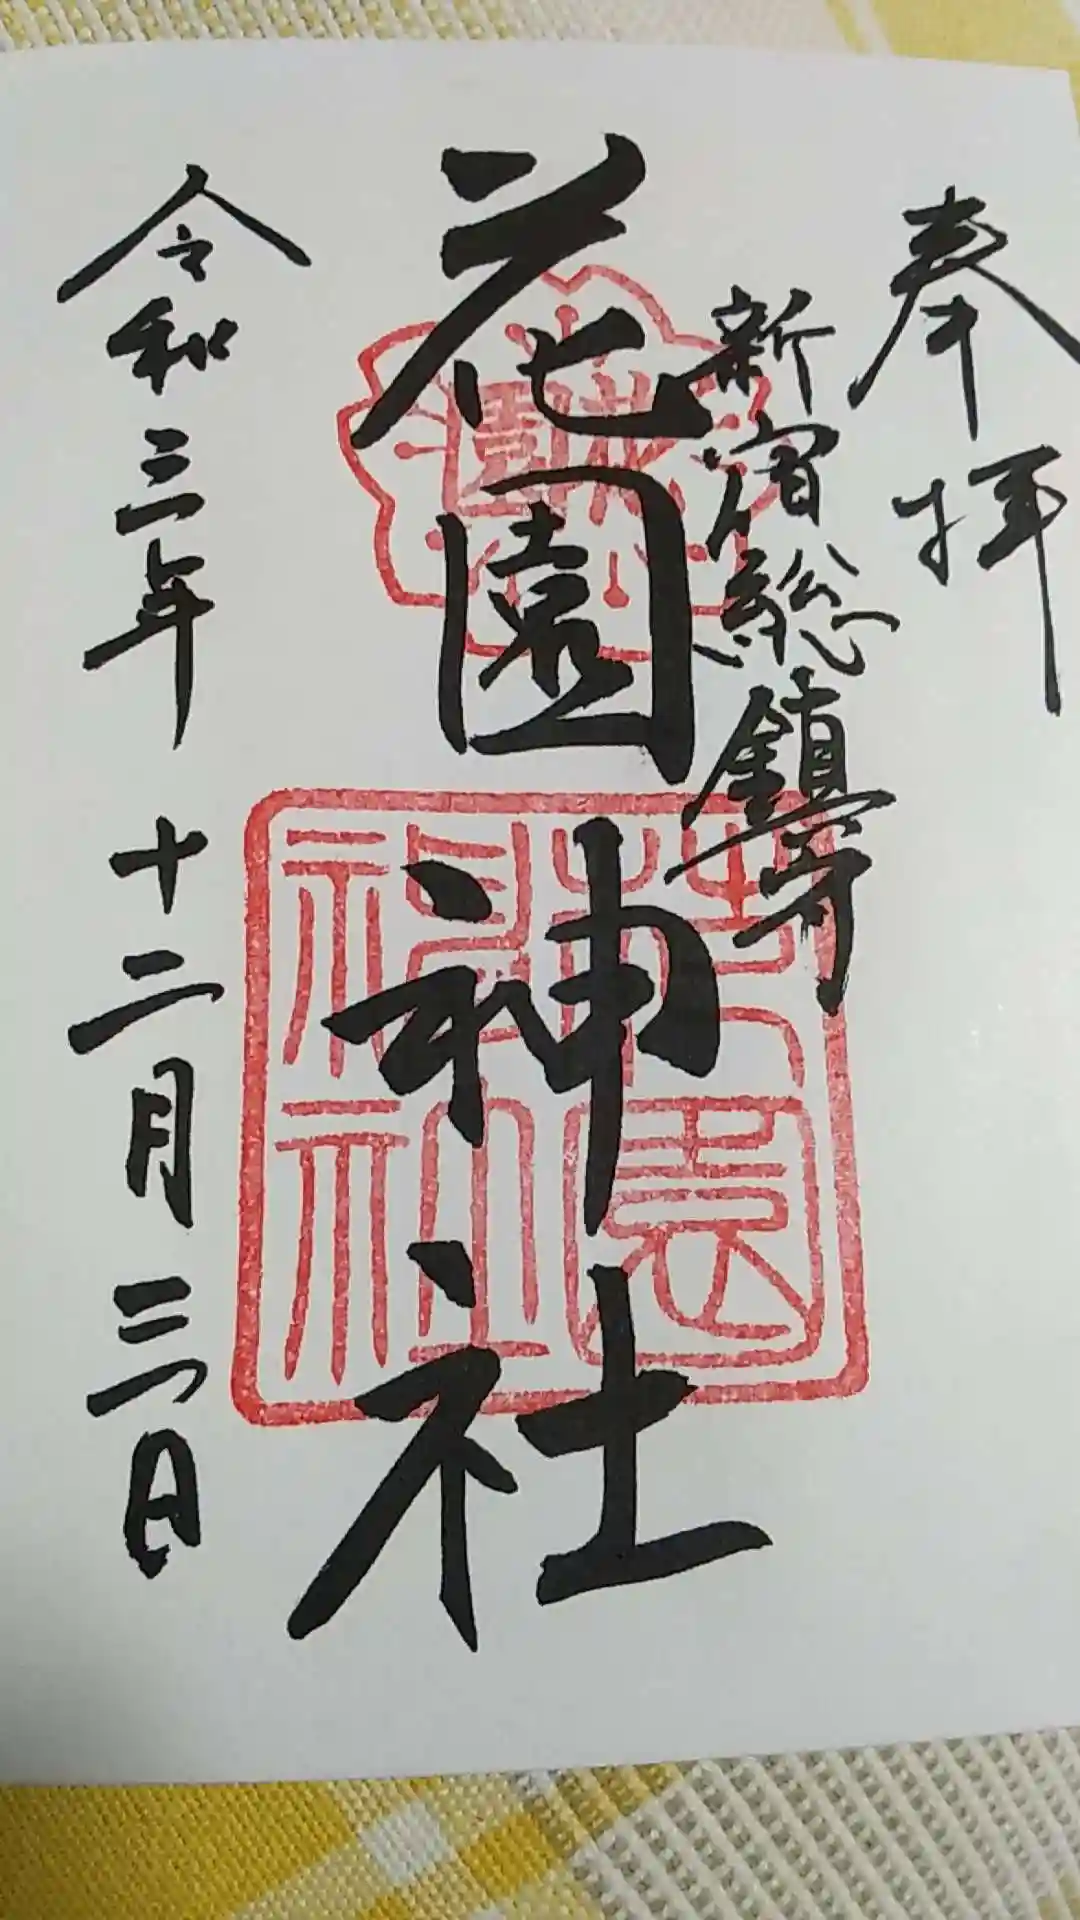 奉拝
新宿総鎮守
花園神社
令和三年 十二月 三日
花園
花園
神社